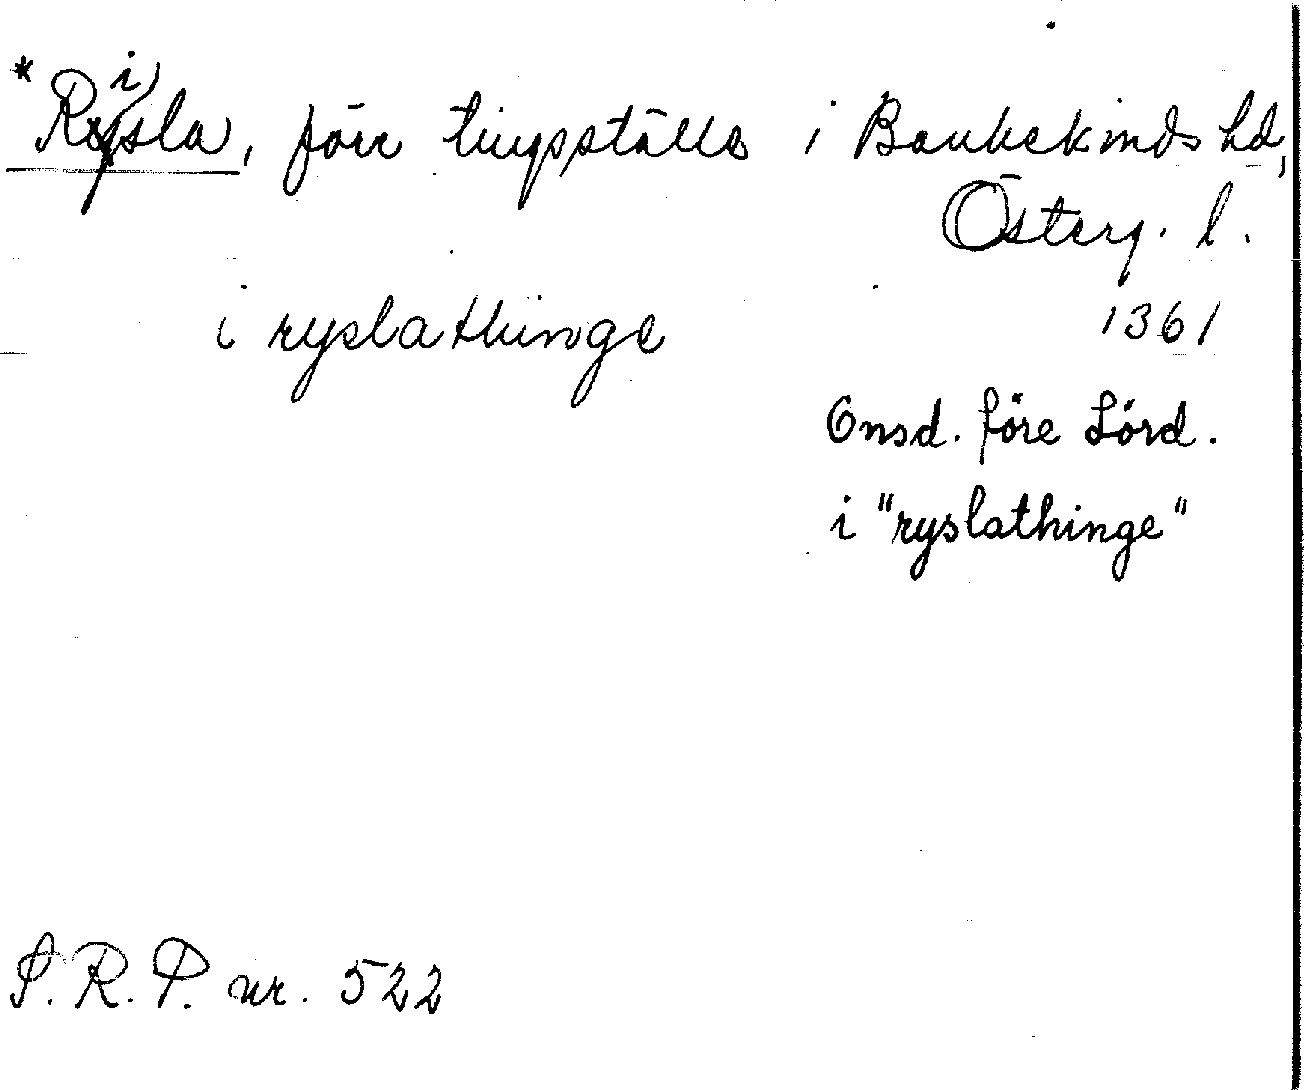 *Risla, förr tingsställe i Bankekinds hd,
Österg. l.
i ryslathinge 1361
Onsd. före Lörd.
i "ryslathinge"
S.R.P. nr. 522